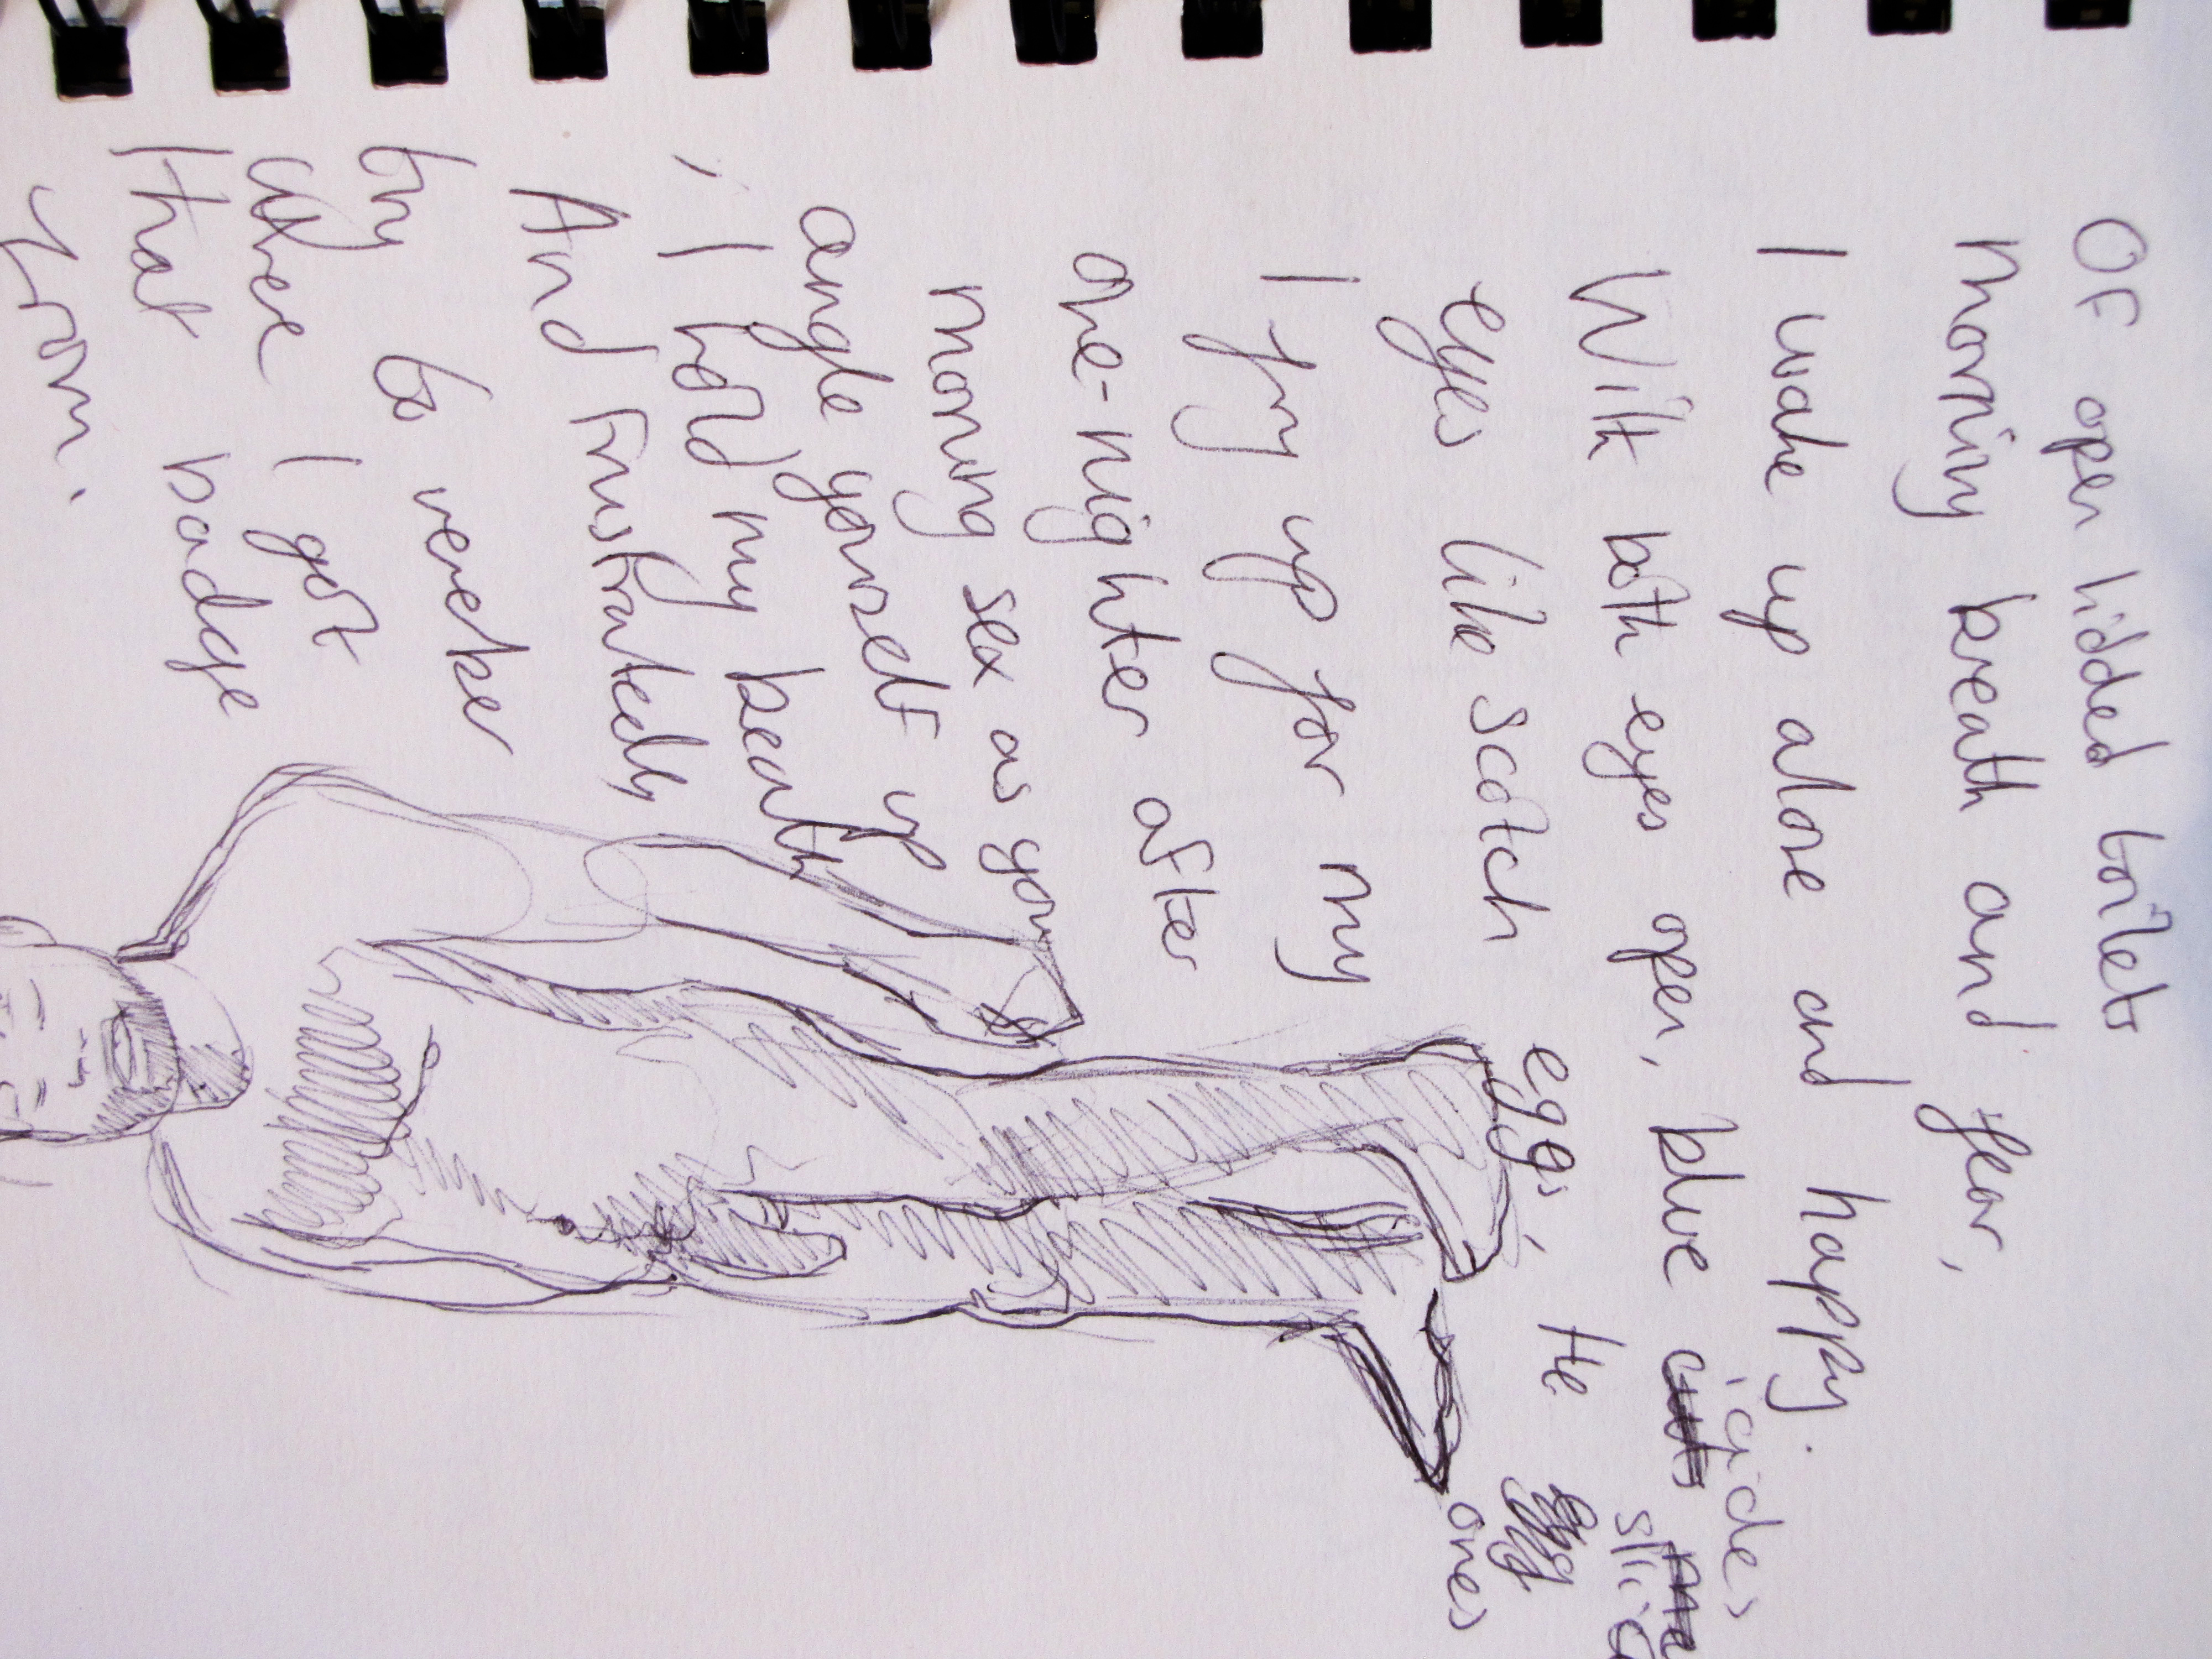 Of open lidded toilets
morning breath and fear,
I wake up alone and happy.
With both eyes open, blue
eyes like scotch eggs, the
ones
I fry up for my
one-nighter after
morning sex as you
angle yourself up
, I hold my breath
And frustratedly
try to
where I got
that badge
from.